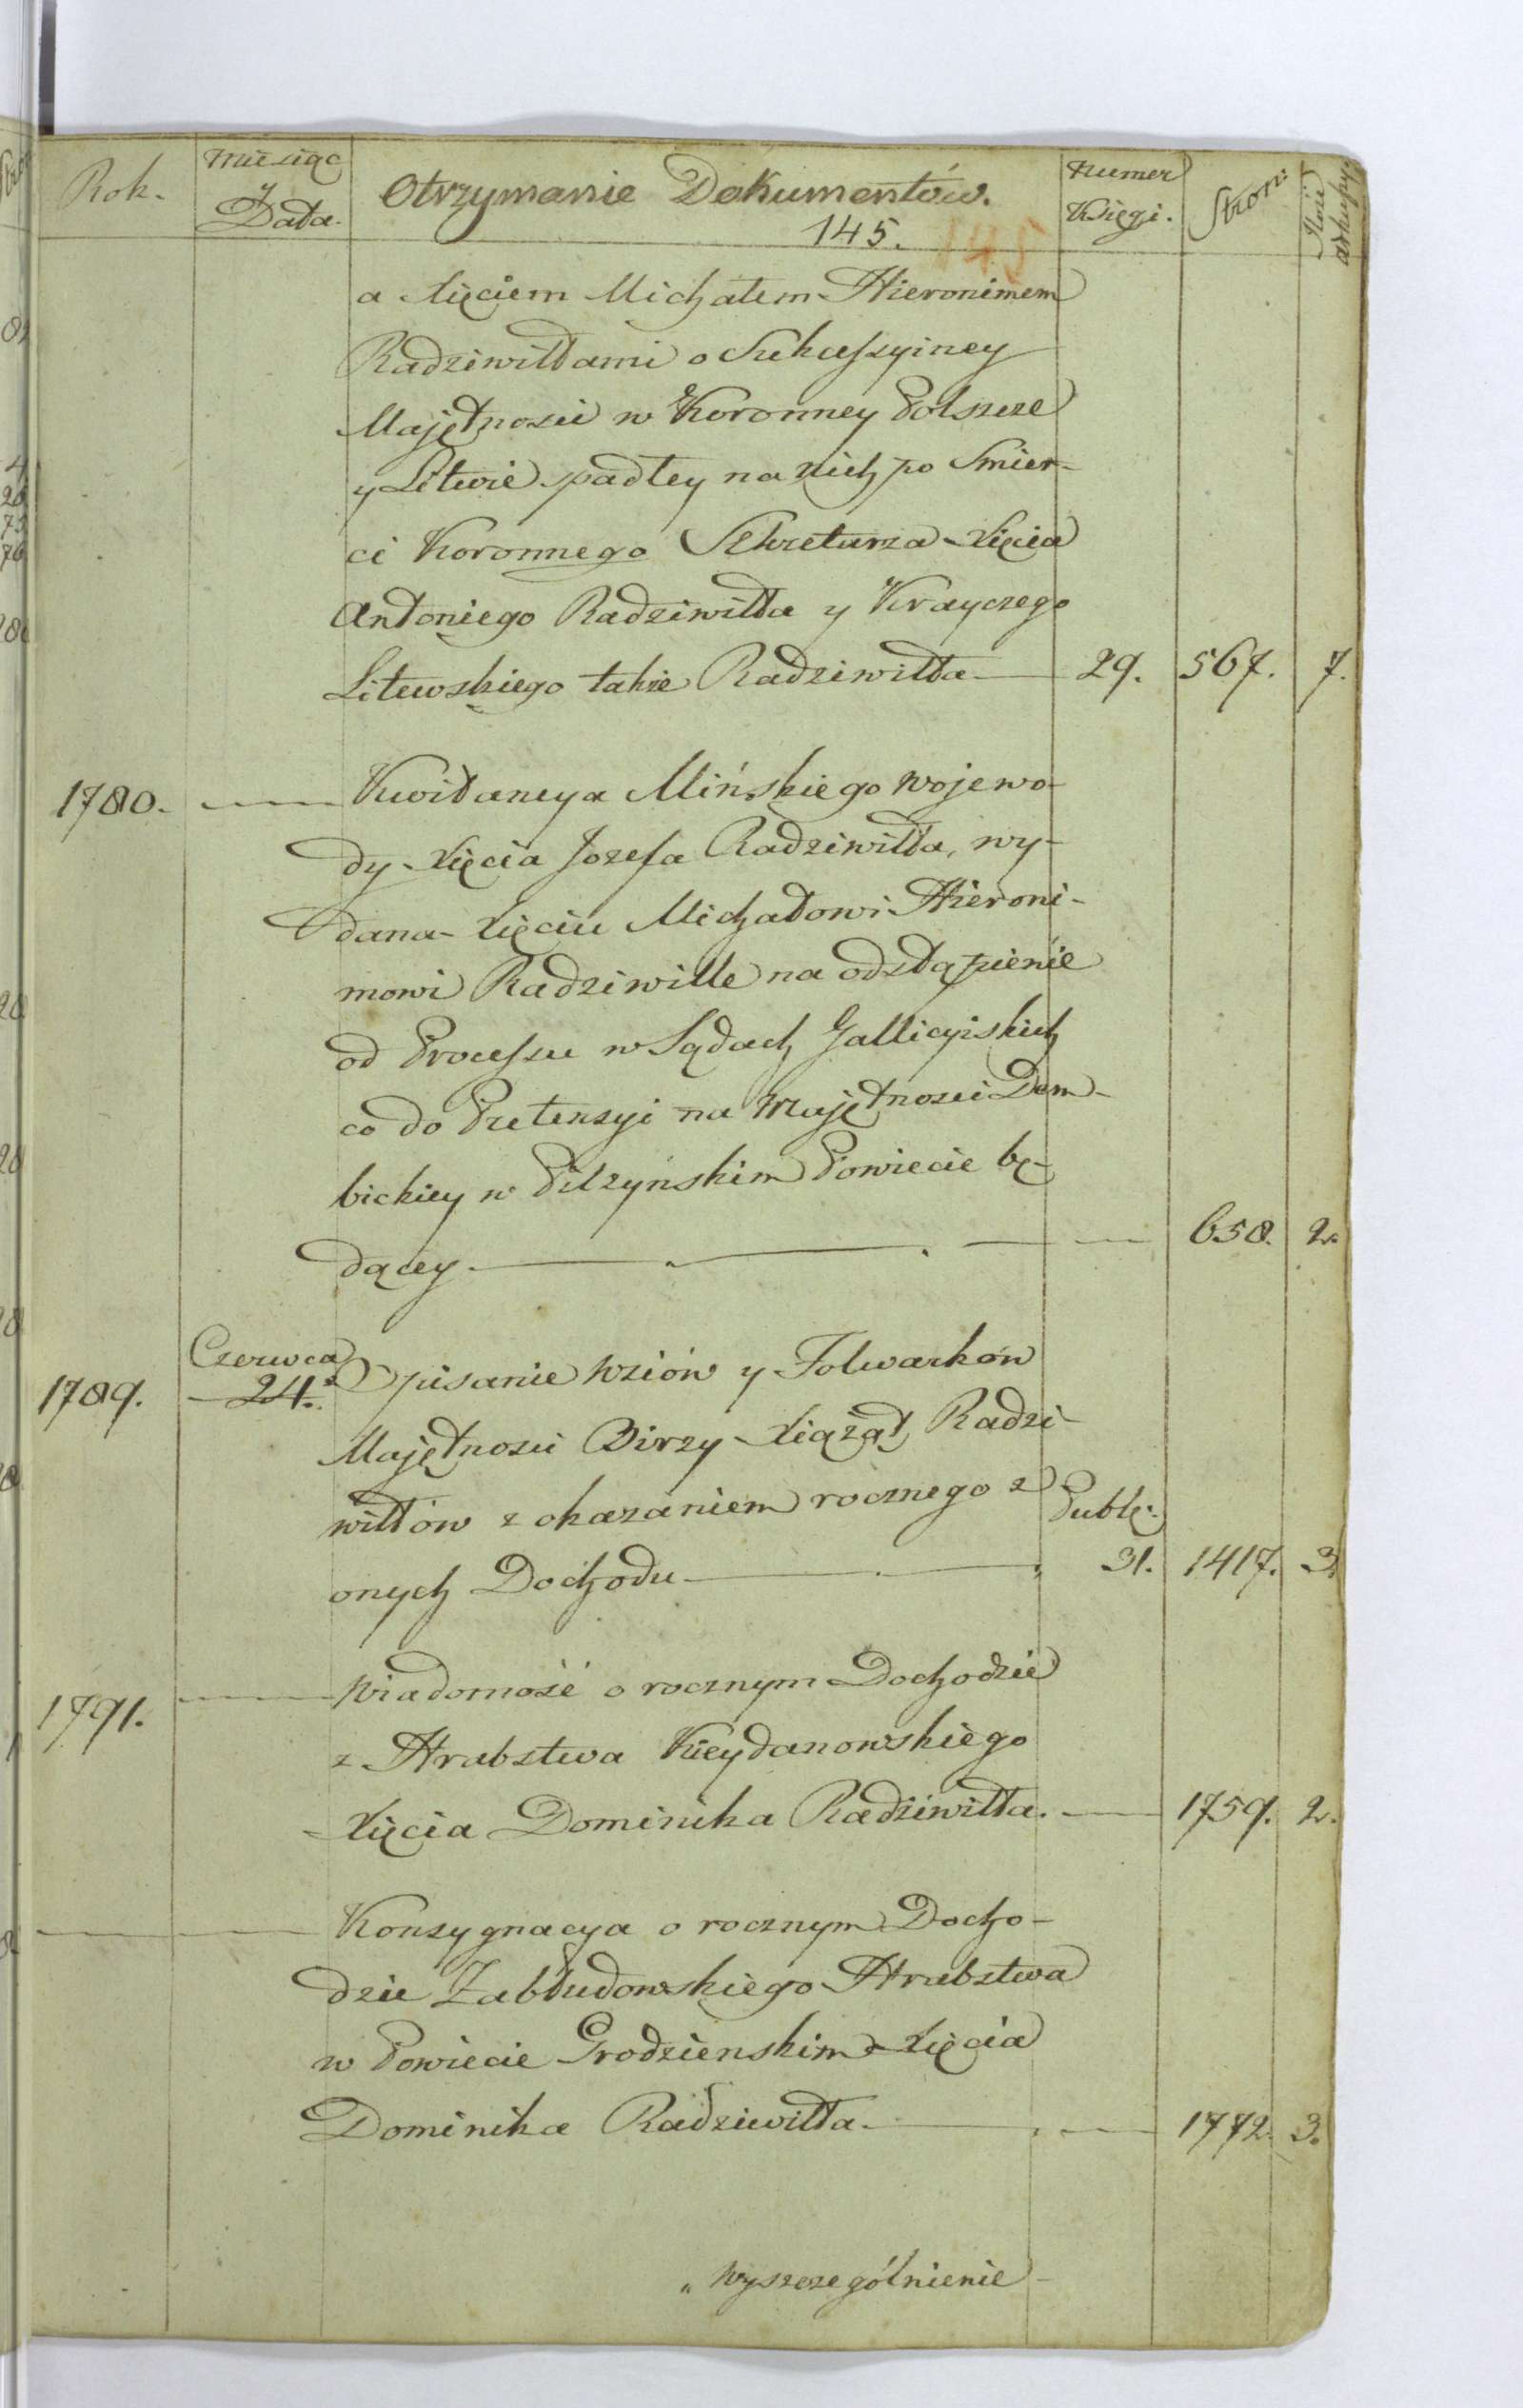 Rok.
Miesiąc
y
Data.
Otrzymanie Dokumentów.
Numer
Księgi.
Stron:
Ilość
arkuszy
145.
145
a Xięciem Michałem Hieronimem
Radziwiłłami o Sukcessyiney
Majętności w Koronney Polszcze
y Litwie spadłey na nich po Smier-
ci Koronnego Sekretarza Xięcia
Antoniego Radziwiłła y Krayczego
Litewskiego także Radziwiłła 29. 567. 7.
1780. Kwitancya Mińskiego Wojewo-
dy Xięcia Jozefa Radziwiłła, wy-
dana Xięciu Michałowi Hieroni-
mowi Radziwille na odstąpienie
od Processu w Sądach Gallicyiskich
co do Pretensyi na Majętnosci Dem-
bickiey w Pilzyńskim Powiecie bę-
dącey 658. 2.
1789. Czerwca
24. Opisanie Wsiów y Folwarków
Majętnosci Birzy Xiążąt Radzi-
wiłłów z okazaniem rocznego z Publ:
onych Dochodu 31. 1417. 3.
1791. Wiadomość o rocznym Dochodzie
z Hrabstwa Kieydanowskiego
Xięcia Dominika Radziwiłła. 1759. 2.
Konsygnacya o rocznym Docho-
dzie Zabłudowskiego Hrabstwa
w Powiecie Grodzienskim Xięcia
Dominika Radziwiłła 1772. 3.
„ Wyszczególnienie